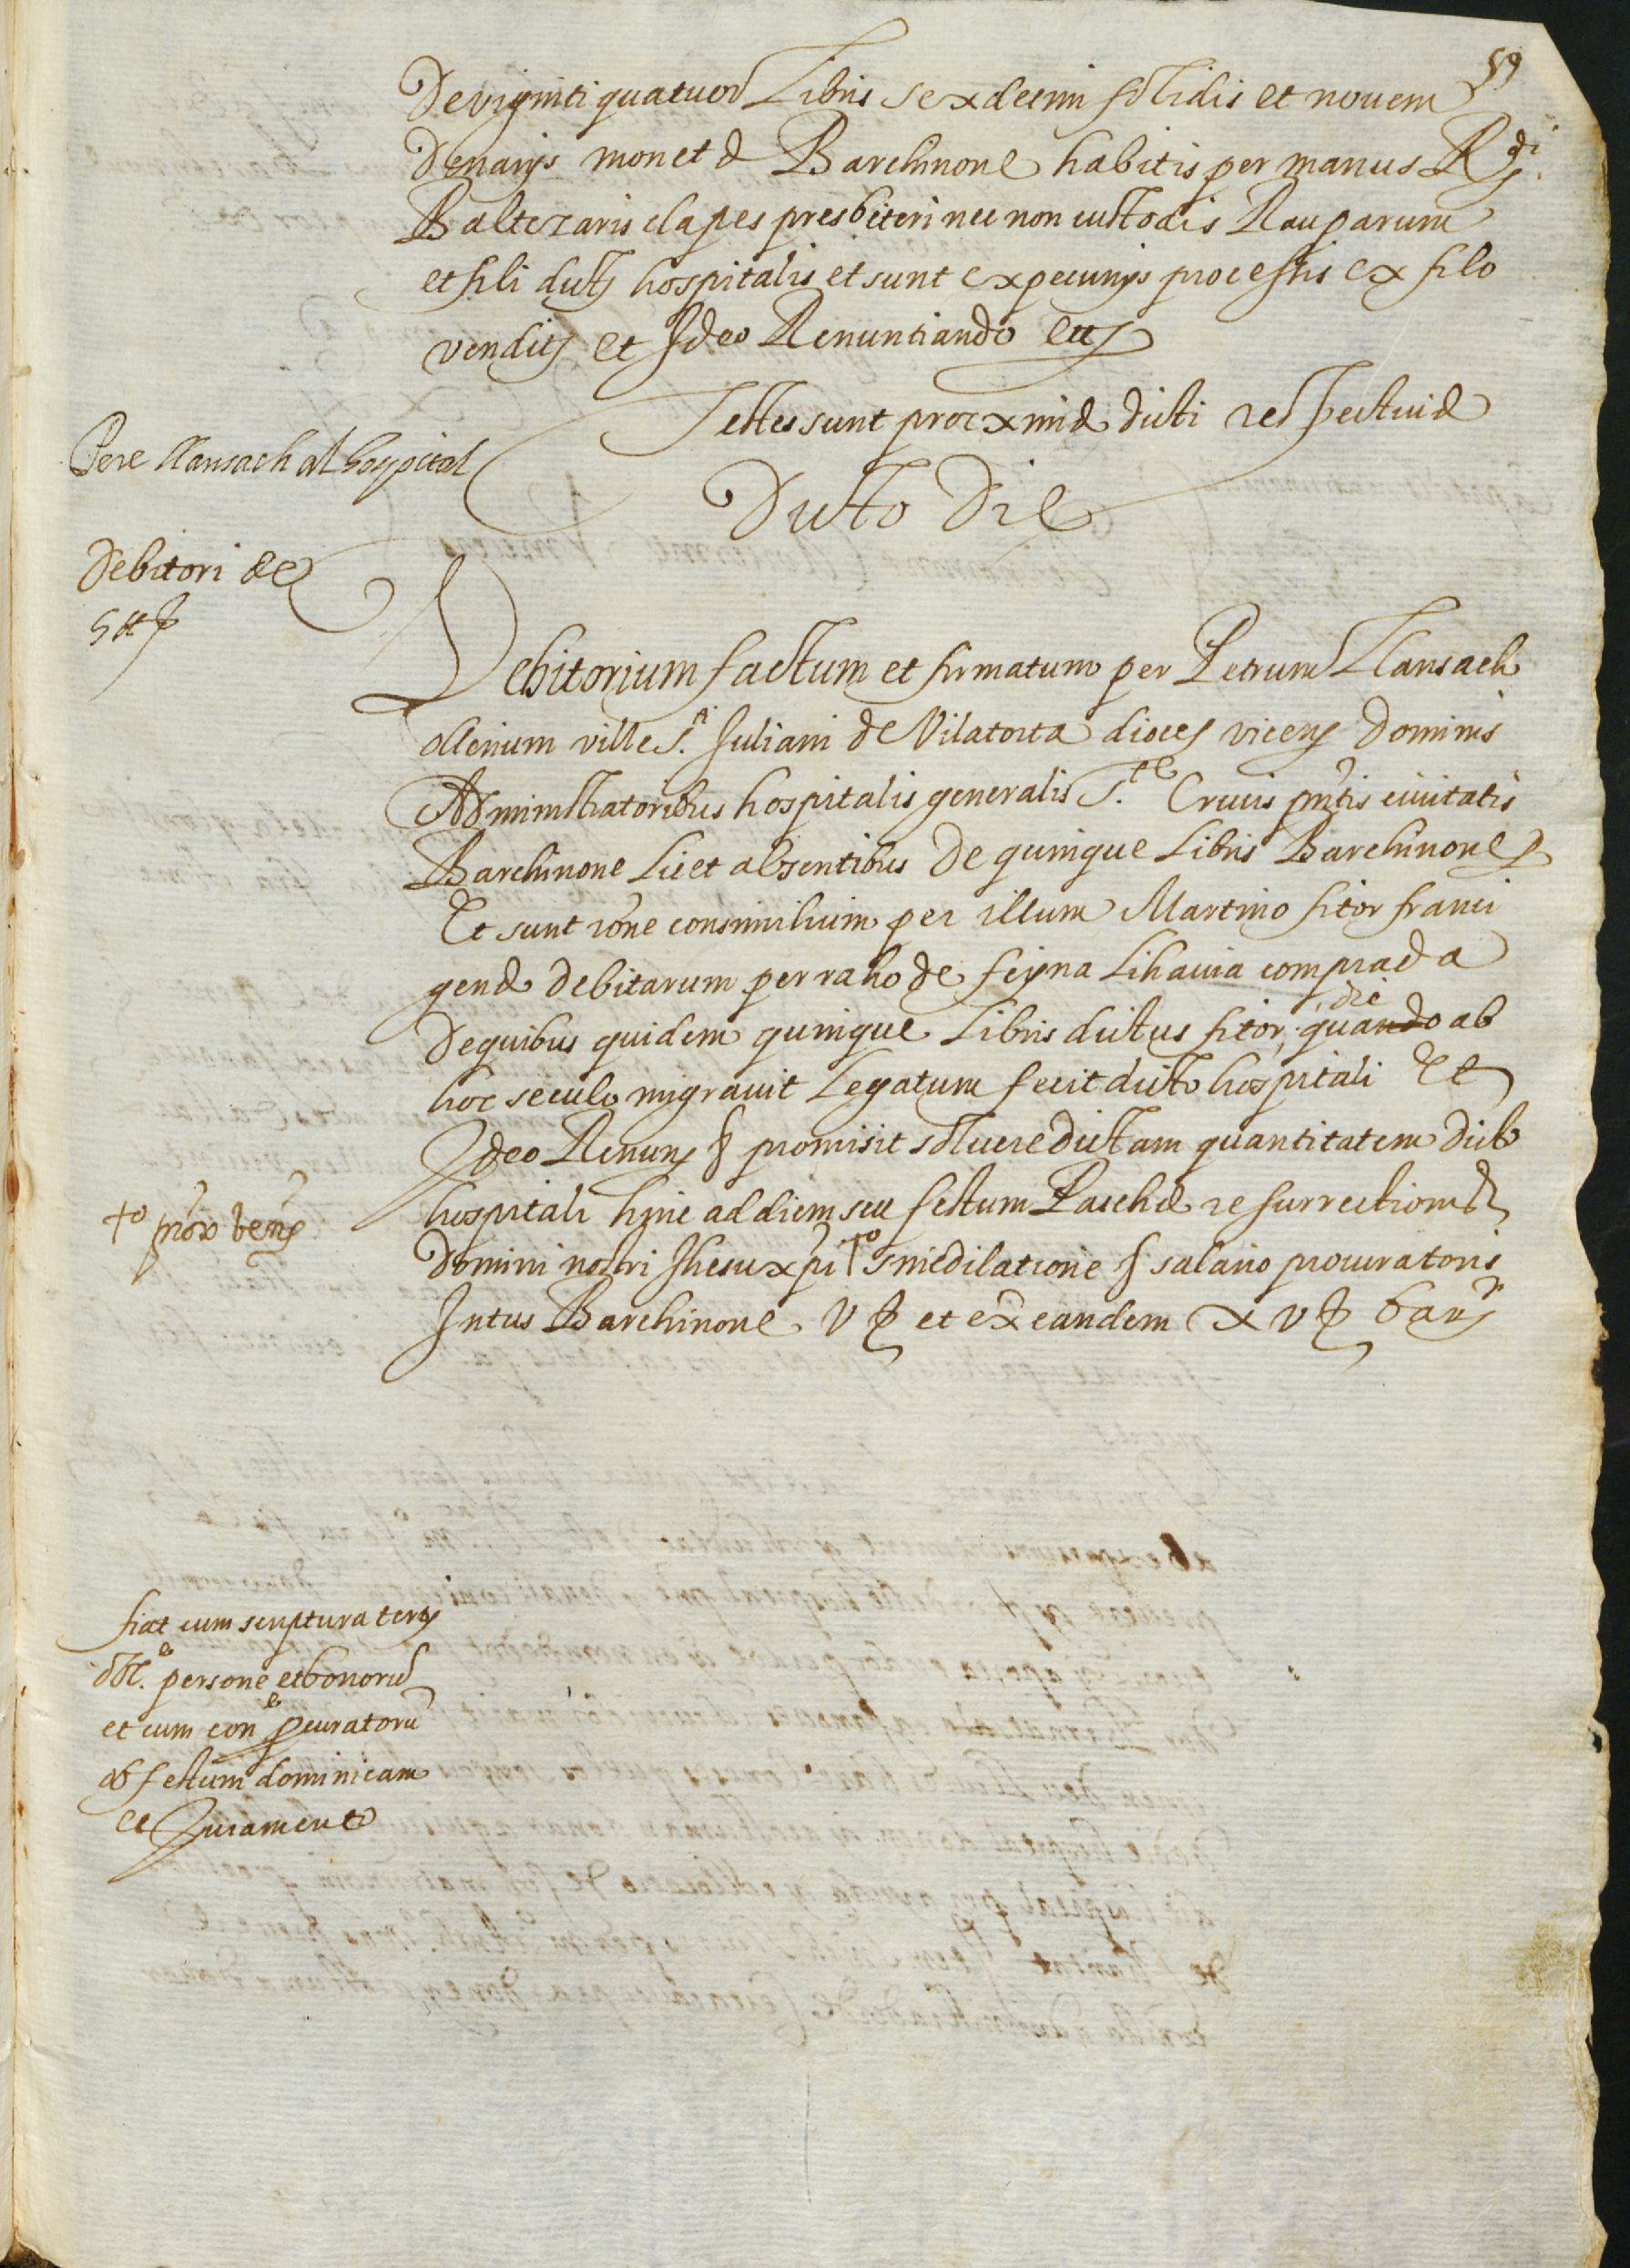 59
De viginti quatuor Libris sexdecim solidis et novem
Denarijs monete Barchinone habitis per manus R.di
Baltezaris clapes presbiteri nec non custodis Rauparum
et fili dicti hospitalis et sunt ex pecunijs processis ex filo
vendit et Ideo Renuntiando etc
Testes sunt procxime dicti respective
Pere llansach al hospital
Dicto Die
Debitori de
5 ll
Debitorium factum et firmatum per Petrum Llansach
ollerium ville S.ti Juliani de Vilatorta dioces vicen Dominis
Administratoribus hospitalis generalis S.te Crucis pntis civitatis
Barchinone Licet absentibus De quinque Libris Barchinone
Et sunt rone consimilium per illum Martino fitor franci
gene Debitarum per raho de feyna li havia comprada
De quibus quidem quinque Libris dictus fitor, quando die ab
hoc seculo migravit Legatum fecit dicto hospitali Et
Ideo Renun promisit solvere dictam quantitatem dicto
hospitali hinc ad diem seu festum Pasche resurrectionis
+o prox ven
Domini nostri Jhesu xpi +o sine dilatione salario procuratoris
Intus Barchinone V et extra eandem X V bar
fiat cum scriptura ter
obl. persone et bonoru
et cum con procuratoru
ob festum dominicam
et Jurament